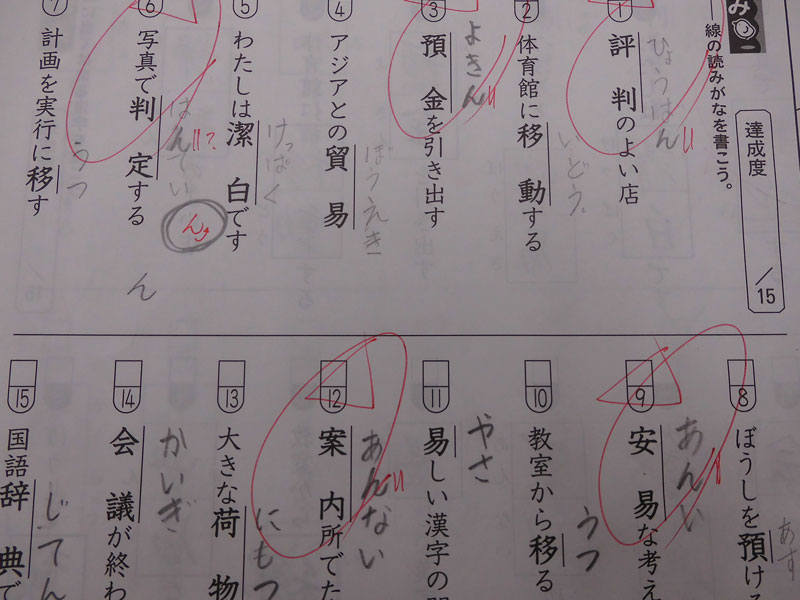 み
線の読みがなを書こう。
達成度
/15
① 評判のよい店
ひょうはん
② 体育館に移動する
いどう
③ 預金を引き出す
よきん
④ アジアとの貿易
ぼうえき
⑤ わたしは潔白です
けっぱく
⑥ 写真で判定する
はんてい
?
ん
ん
⑦ 計画を実行に移す
うつ
⑧ ぼうしを預け
あず
⑨ 安易な考え
あんい
⑩ 教室から移る
うつ
⑪ 易しい漢字の
やさ
⑫ 案内所でた
あんない
⑬ 大きな荷物
にもつ
⑭ 会議が終わ
かいぎ
⑮ 国語辞典で
じてん